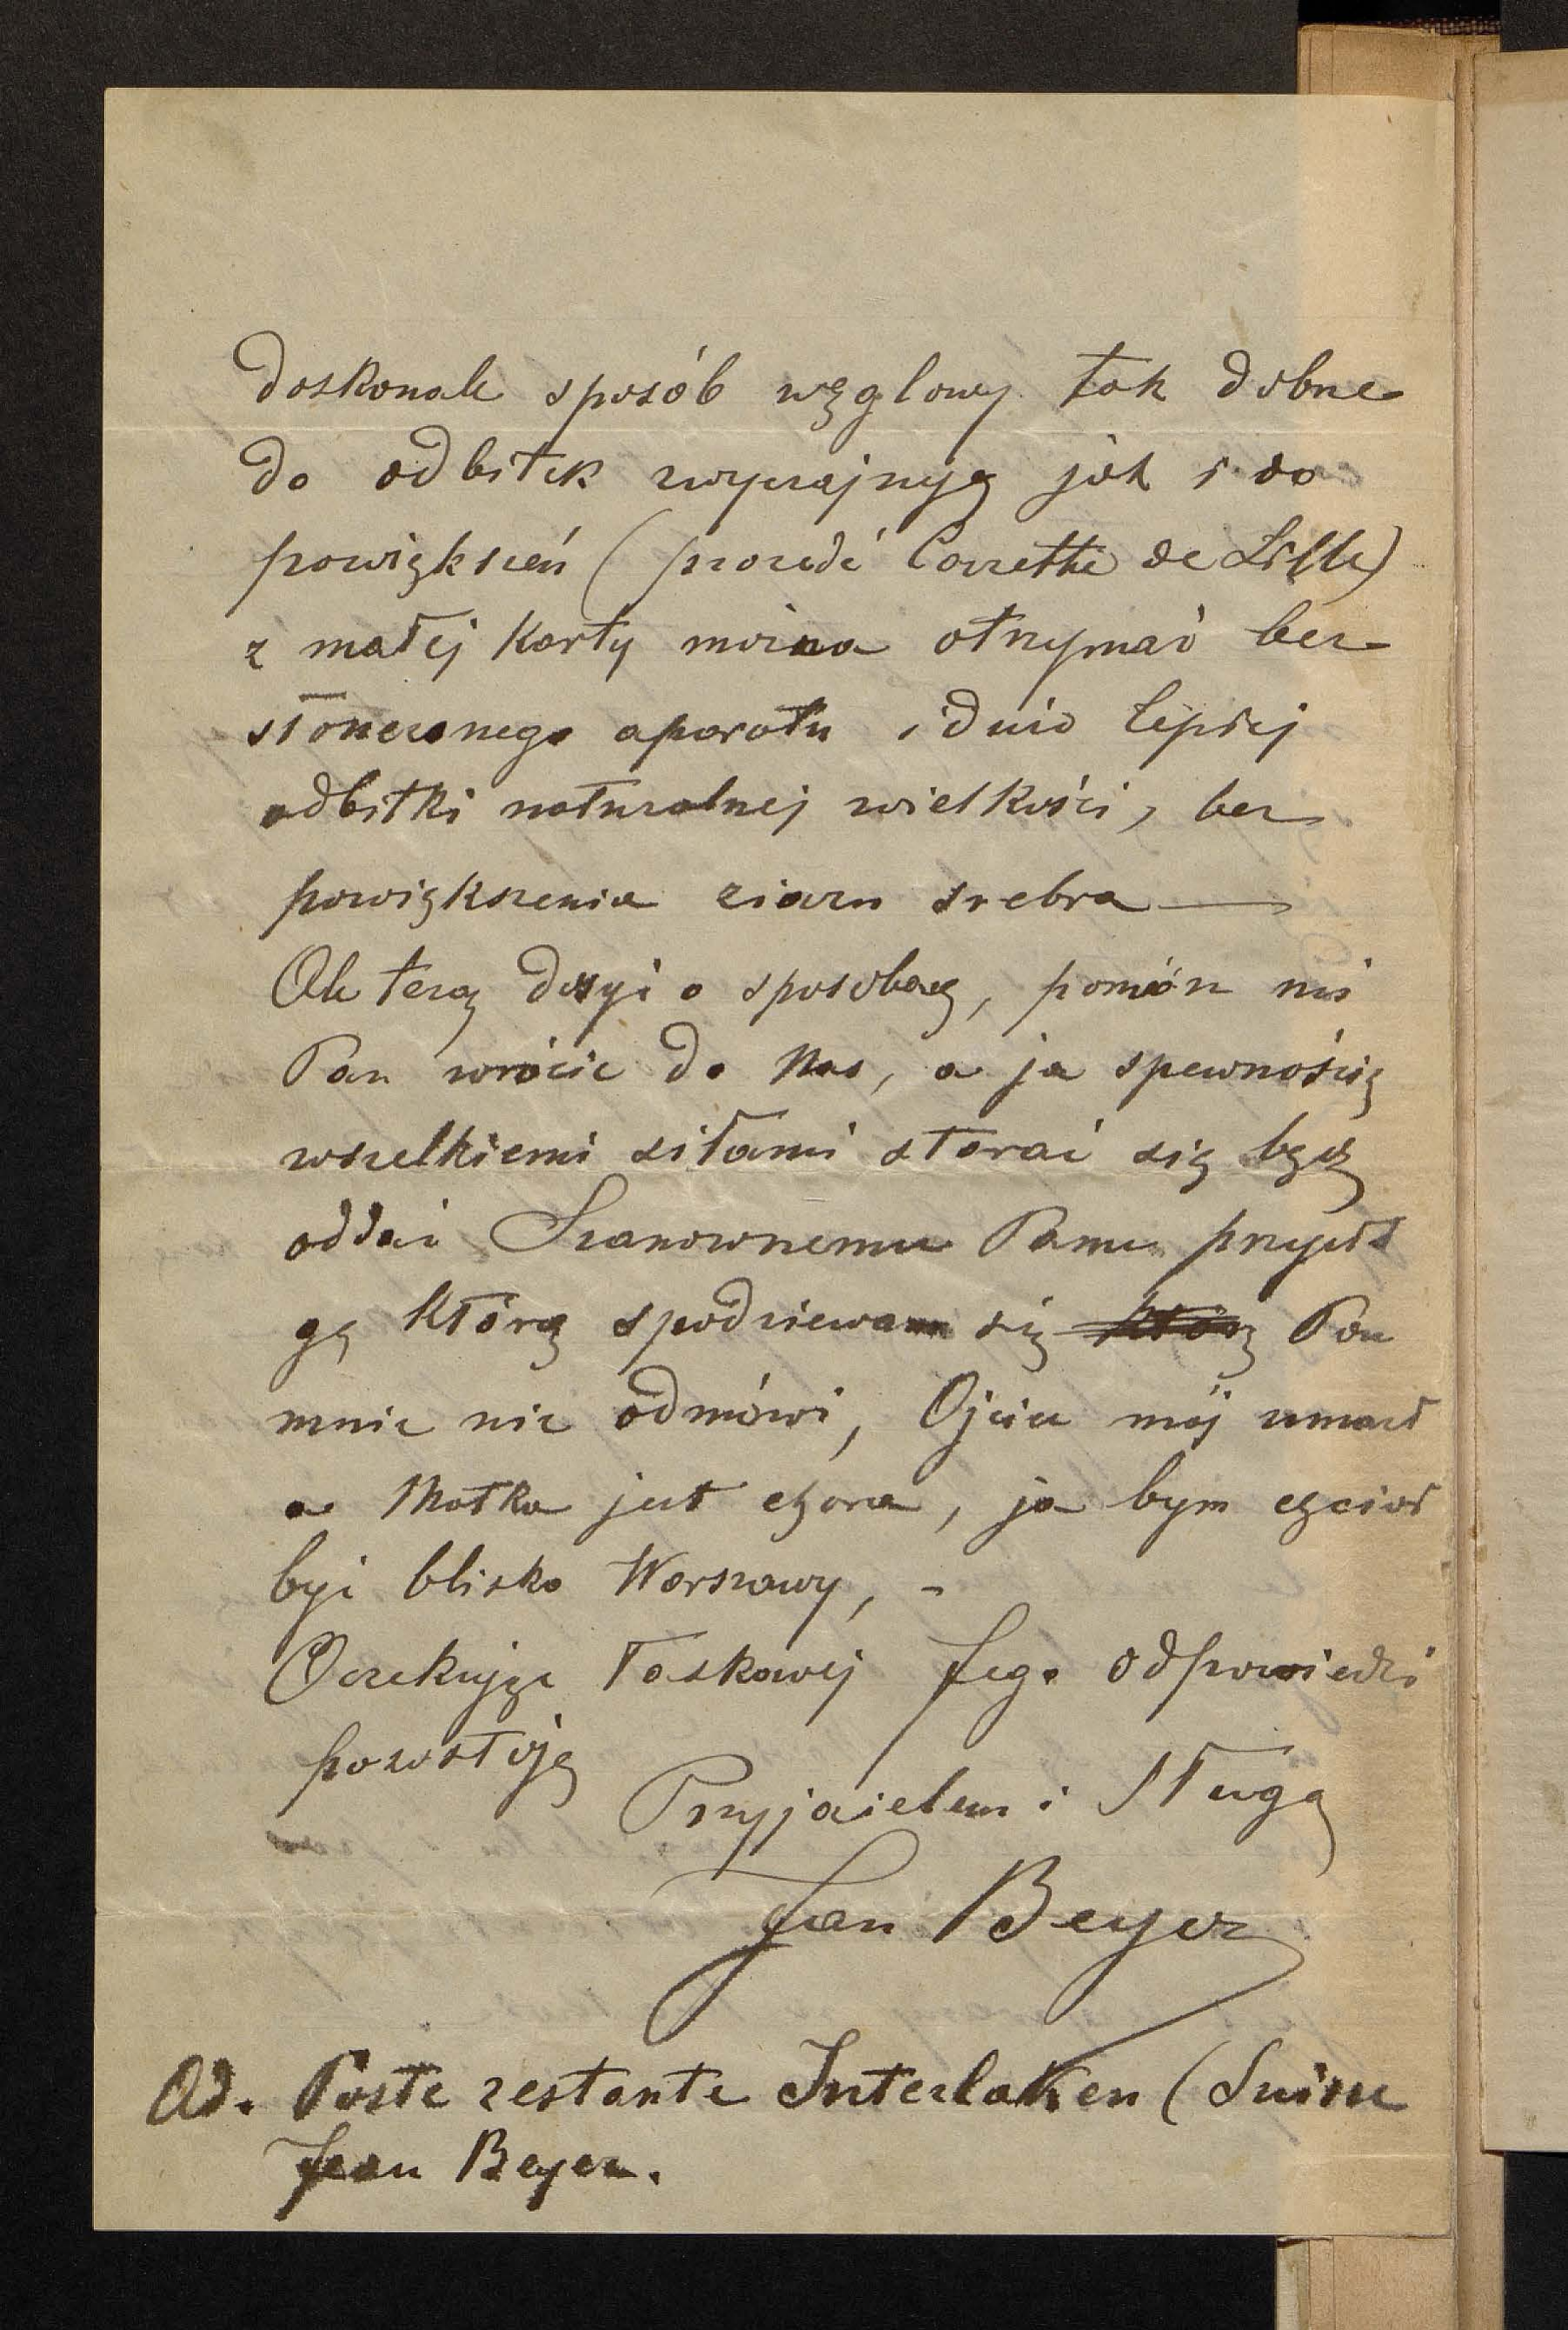 doskonale sposób węglowy tak dobrze
do odbitek zwyczajnyą jak i do
powiększeń (procedé Carette de Lille)
z małej karty można otrzymać bez
słonecznego aparatu i dużo lepszej
odbitki naturalnej wielkości, bez
powiększenia ziarn srebra —
Ale teraz dosyć o sposobaą, pomóż mi
Pan wrócic do Nas, a ja spewnością
wszelkiemi siłami starać się będę
oddać Szanownemu Panu przysłó
gę którą spodziewam się któr​ą Pan
mnie nie odmówi, Ojciec mój umarł
a Matka jest chora, ja bym chciał
być blisko Warszawy, -
Oczekując łaskawej Jego odpowiedzi
pozostoję
Przyjacielem i Sługą
Jan Beyer
Ad. Poste restante Interlaken (Suisse
Jean Beyer.